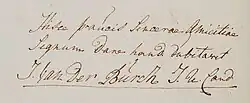 Hisce paucis Sincerae Amicitiae
Signum Dare haud dubitavit
J. Van Der Burch J. U. Cand